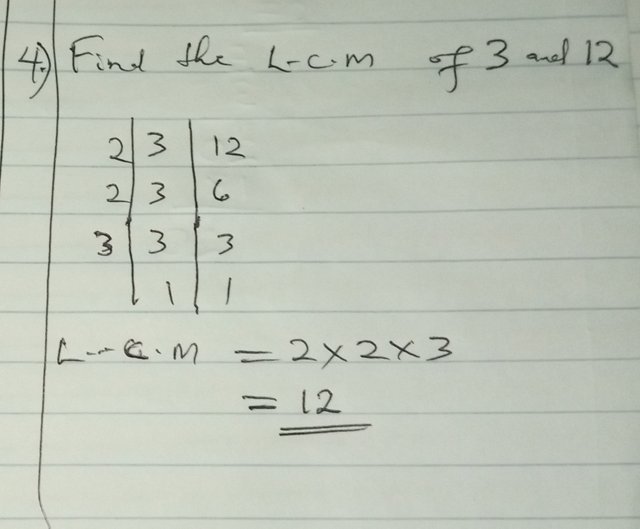 4.) Find the L.C.M of 3 and 12
2 | 3 | 12
2 | 3 | 6
3 | 3 | 3
| 1 | 1
L.C.M = 2 x 2 x 3
= 12